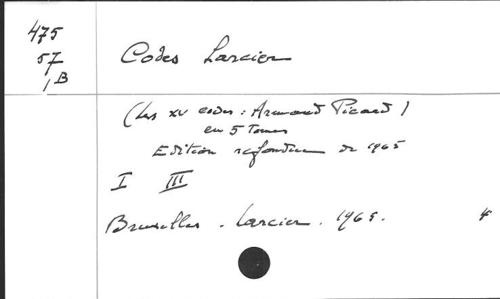 475
57
1B
Codes Larcier
(Les XV codes : Armand Picard)
en 5 Tomes
Edition refondue de 1965
I III
Bruxelles . Larcier . 1965.